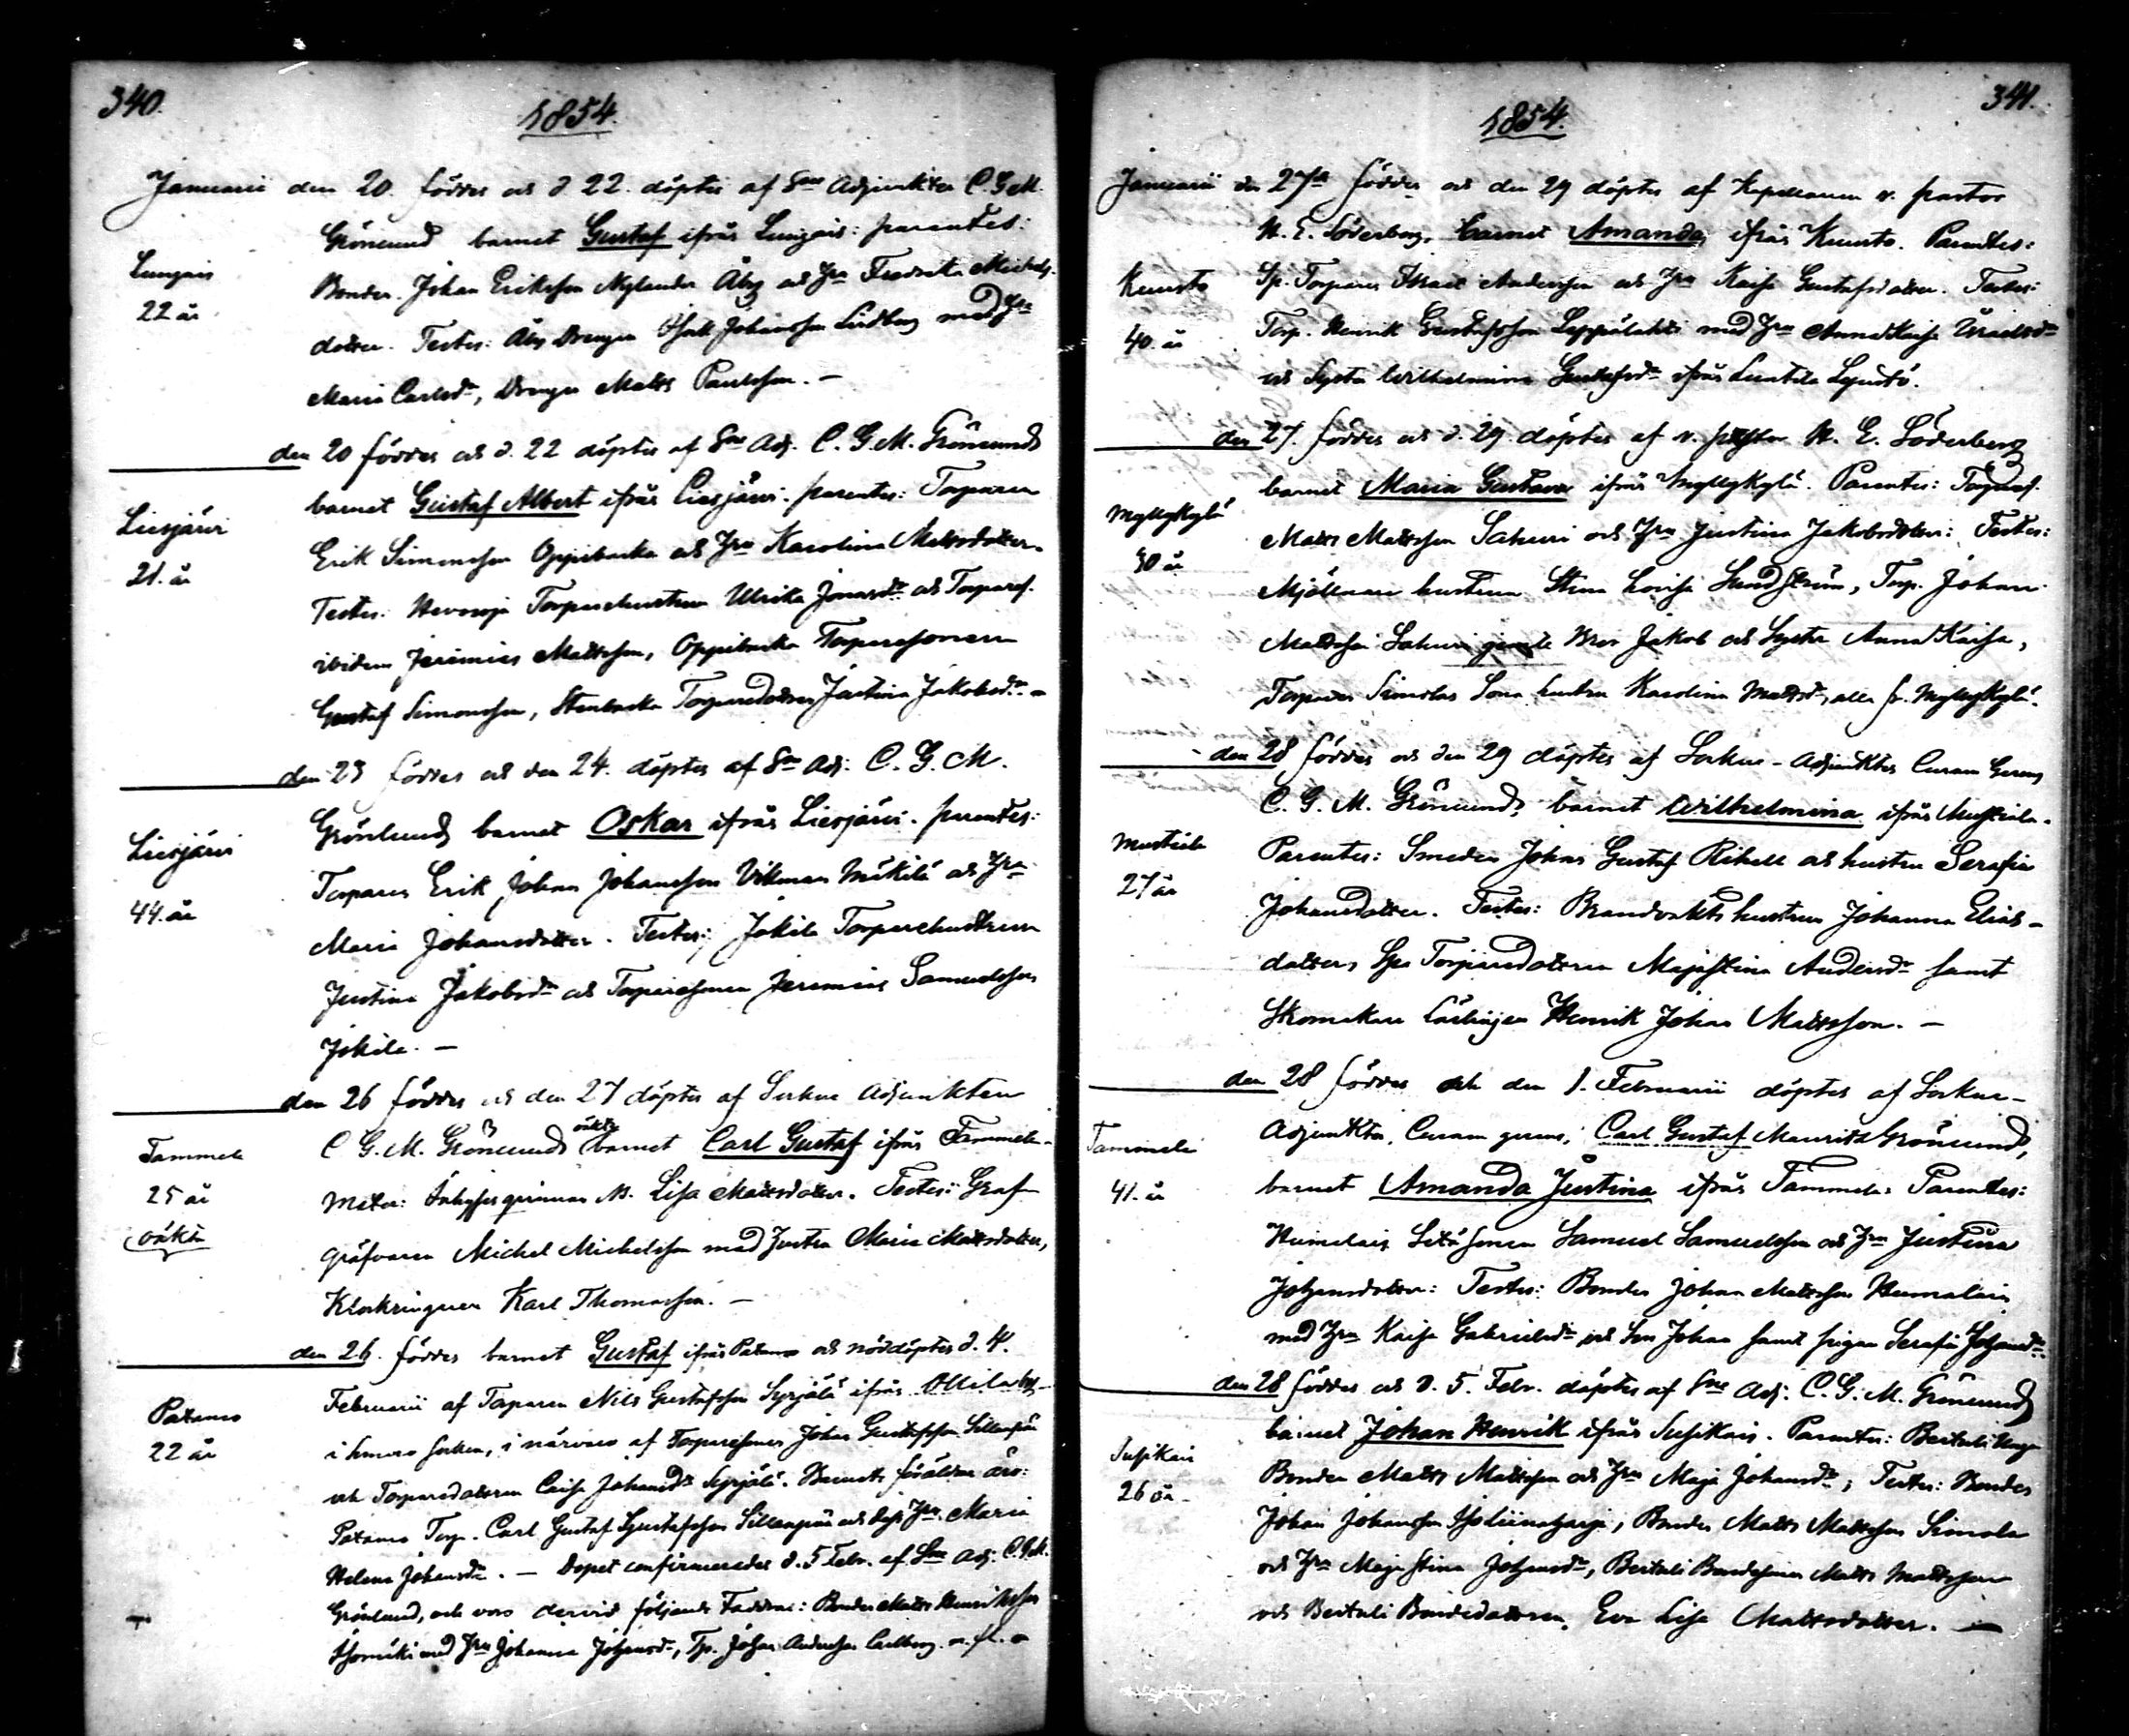 340.
1854.
Januarii den 20. föddes och d 22. döptes af Sne Adjunkten C. G. M.
Grönlund barnet Gustaf ifrån Lungais: parentes:
Lungais
22 år
Bonden Johan Eriksson Nylander Åby och Hru Fredrika Michels-
dotter. Testes: Åby Drengen Isak Johansson Lindberg med Hru
Maria Carlsdr, Drengen Matts Paulsson. —
den 20 föddes och d. 22 döptes af Sne Adj. C. G. M. Grönlund
barnet Gustaf Albert ifrån Liesjärvi. parentes: Torparen
Liesjärvi
21. år
Erik Simonsson Oppibacka och Hru Karolina Mattsdotter.
Testes: Torparehustrun Ulrika Jonasdr och Torpares.
ibidem Jeremias Mattsson, Oppibacka Torparesonen
Gustaf Simonsson, Stenbacka Torparedottren Justina Jakobsdr. —
den 23 föddes och den 24. döptes af Sne Adj. C. G. M.
Grönlund barnet Oskar ifrån Liesjärvi. parentes:
Liesjärvi
44. år
Torparen Erik Johan Johansson Vikman Mäkilä och Hru
Maria Johansdotter. Testes: Jokila Torparehustrun
Justina Jakobsdr och Torparesonen Jeremias Samuelsson
Jokila. —
den 26 föddes och den 27 döptes af Sockne Adjunkten
C. G. M. Grönlund oäkta barnet Carl Gustaf ifrån Tammela.
Tammela
25 år
oäkta
Mater: Inhysesqvinnan N. Lisa Mattsdotter. Testes: Graf-
gräfvaren Michel Michelsson med hustru Maria Mattsdotter,
Klockringaren Karl Thomasson. —
den 26. föddes barnet Gustaf ifrån Patamo och nöddöptes d. 4.
Patamo
22 år
Februarii af Torparen Nils Gustafsson Syrjälä ifrån Ollila by
i Somero socken, i närvaro af Torparesonen Johan Gustafsson Sillanpää
och Torparedottren Caisa Johansdr Syrjälä. Barnets föräldrar äro:
Patamo Torp. Carl Gustaf Gustafsson Sillanpää och dess Hru Maria
Helena Johansdr. — Dopet confirmerades d. 5 Febr. af Sne Adj. C. G. M.
Grönlund, och voro dervid följande Faddrar: Bonden Matts Henriksson
med Hru Johanna Johansdr, Tp. Johan Andersson Carlberg m. fl. —
341.
1854.
Januarii den 27de föddes och den 29 döptes af Kapellanen v. pastor
N. E. Söderberg, barnet Amanda ifrån Kuusto. Parentes:
Kuusto
40. år
Sp. Torparen Israel Andersson och Hru Kaisa Gustafsdotter. Testes:
Torp. Henrik Gustafsson Leppälahti med Hru Anna Kaisa Israelsdr
och Syster Wilhelmina Gustafsdr ifrån Luntila
den 27. föddes och d. 29 döptes af v. pastor N. E. Söderberg
barnet Maria Gustava ifrån Myllykylä. Parentes: Torpares.
Myllykylä
30 år
Matts Mattsson Sakuri och Hru Justina Jakobsdotter: Testes:
Mjölnare hustrun Stina Lovisa Sundström, Torp. Johan
Mattsson Sakuri Bror Jakob och Syster Anna Kaisa,
Torparen Simolas Sona hustru Karolina Mattsdr, alla fr. Myllykylä.
den 28 föddes och den 29 döptes af Sockne-Adjunkten Curam Gerens
C. G. M. Grönlund, barnet Wilhelmina ifrån Mustiala.
Mustiala
27 år
Parentes: Smeden Johan Gustaf Rihell och hustru Serafia
Johansdotter. Testes: Brandvakts hustrun Johanna Elias-
dotter, Spa Torparedottren Majastina Andersdr samt
Skomakare Lärlingen Henrik Johan Mattsson. —
den 28 föddes och den 1. Februarii döptes af Sockne-
Adjunkten, Curam gerens, Carl Gustaf Mauritz Grönlund,
Tammela
41. år
barnet Amanda Justina ifrån Tammela: Parentes:
Humalais Sonen Samuel Samuelsson och Hru Justina
Johansdotter: Testes: Bonden Johan Mattsson Humalais
med Hru Kaisa Gabrielsdr och Son Johan samt pigan Serafia Johansdr.
den 28 föddes och d. 5. Febr. döptes af Sne Adj. C. G. M. Grönlund
barnet Johan Henrik ifrån Susikais. Parentes: Bertuli
Susikais
26 år.
Bonden Matts Mattsson och Hru Maja Johansdr; Testes: Bonden
Johan Johansson, Bonden Matts Mattsson Simola
och Hru Maja Stina Johansdr, Bertuli Bondesonen Matts Mattsson
och Bertuli Bondedottren, Eva Lisa Mattsdotter. —